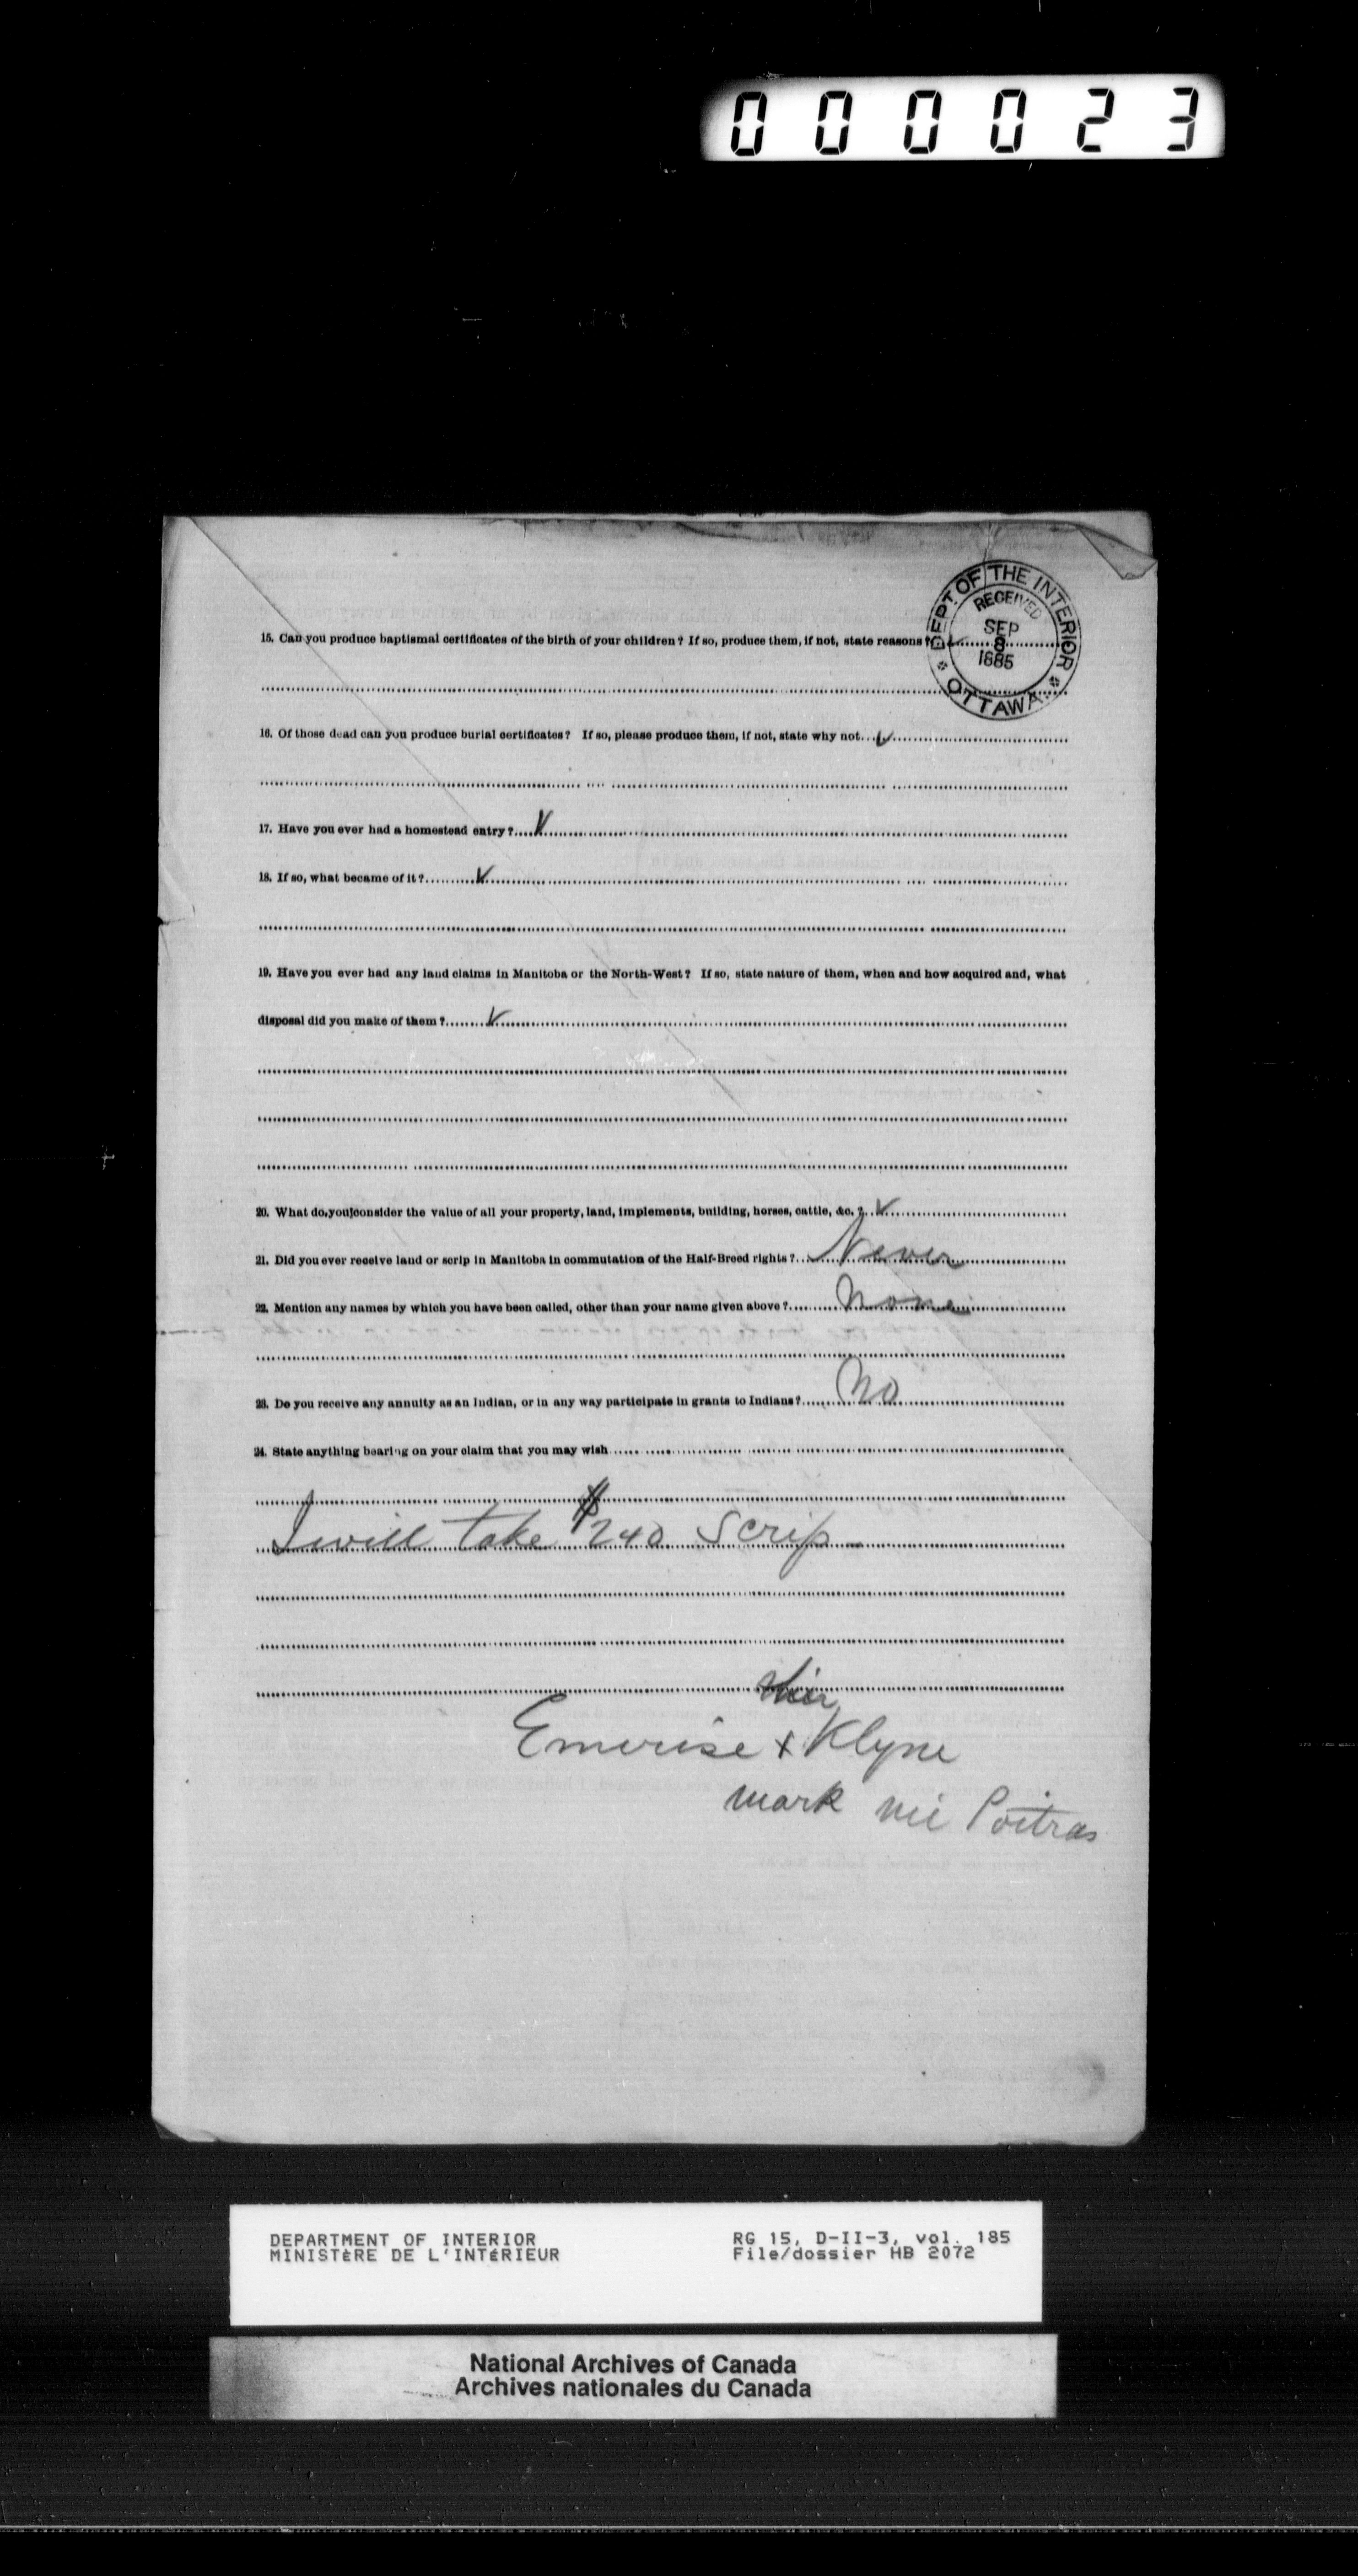 000023
DEPT. OF THE INTERIOR
RECEIVED
SEP
8
1885
OTTAWA
15. Can you produce baptismal certificates of the birth of your children? If so, produce them, if not, state reasons?
16. Of those dead can you produce burial certificates? If so, please produce them, if not, state why not
17. Have you ever had a homestead entry?
18. If so, what became of it?
19. Have you ever had any land claims in Manitoba or the North-West? If so, state nature of them, when and how acquired and, what
disposal did you make of them?
20. What do you consider the value of all your property, land, implements, building, horses, cattle, &c.?
21. Did you ever receive land or scrip in Manitoba in commutation of the Half-Breed rights? Never
22. Mention any names by which you have been called, other than your name given above? None
23. Do you receive any annuity as an Indian, or in any way participate in grants to Indians? No
24. State anything bearing on your claim that you may wish
I will take $240 Scrip
her
Emerise x Klyne
mark née Poitras
DEPARTMENT OF INTERIOR
MINISTÈRE DE L'INTÉRIEUR
RG 15, D-II-3, vol. 185
File/dossier HB 2072
National Archives of Canada
Archives nationales du Canada